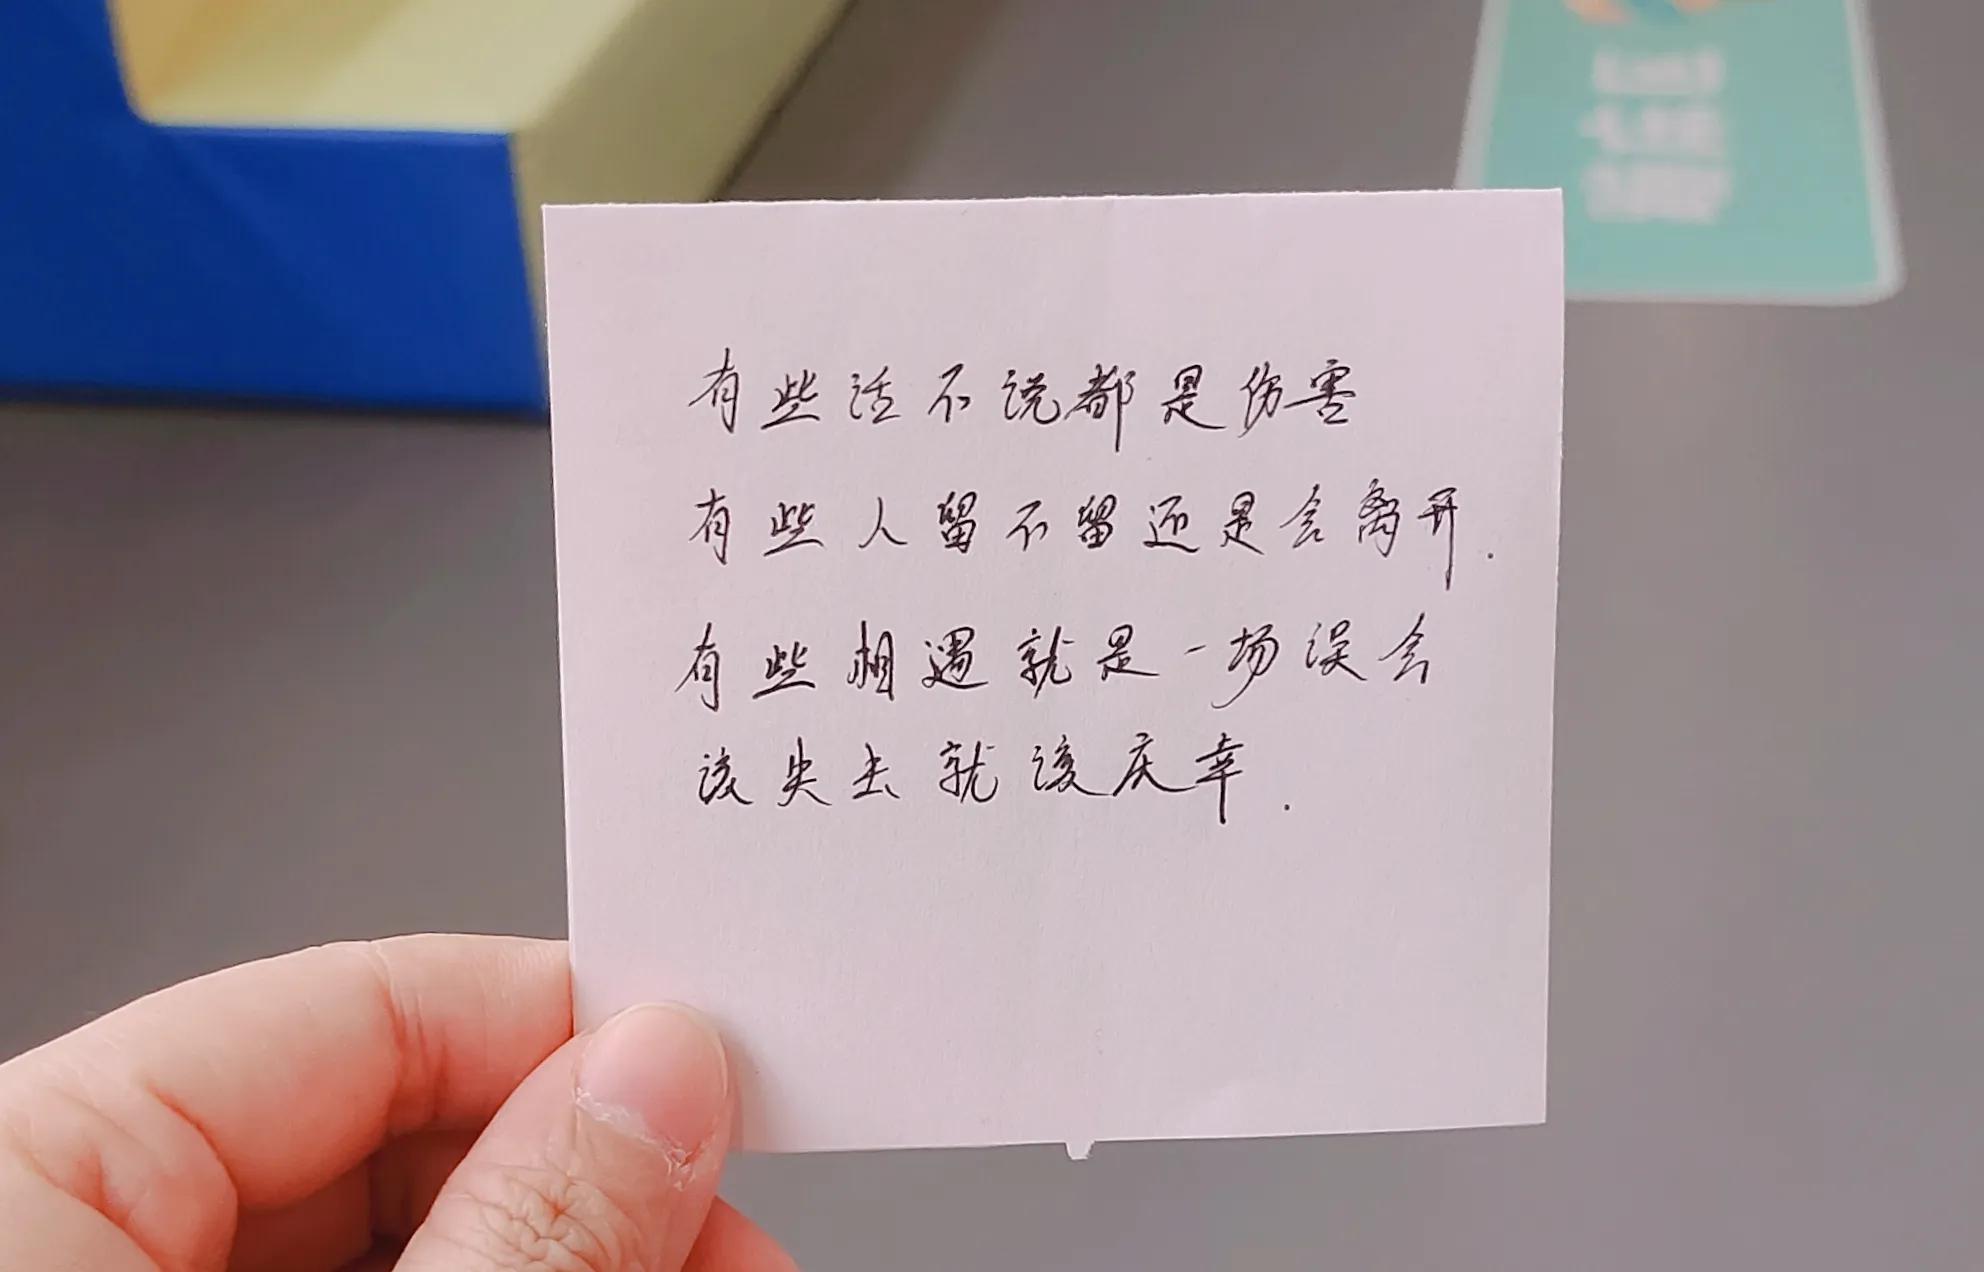 有些话不说都是伤害
有些人留不留还是会离开.
有些相遇就是一场误会
该失去就该庆幸.